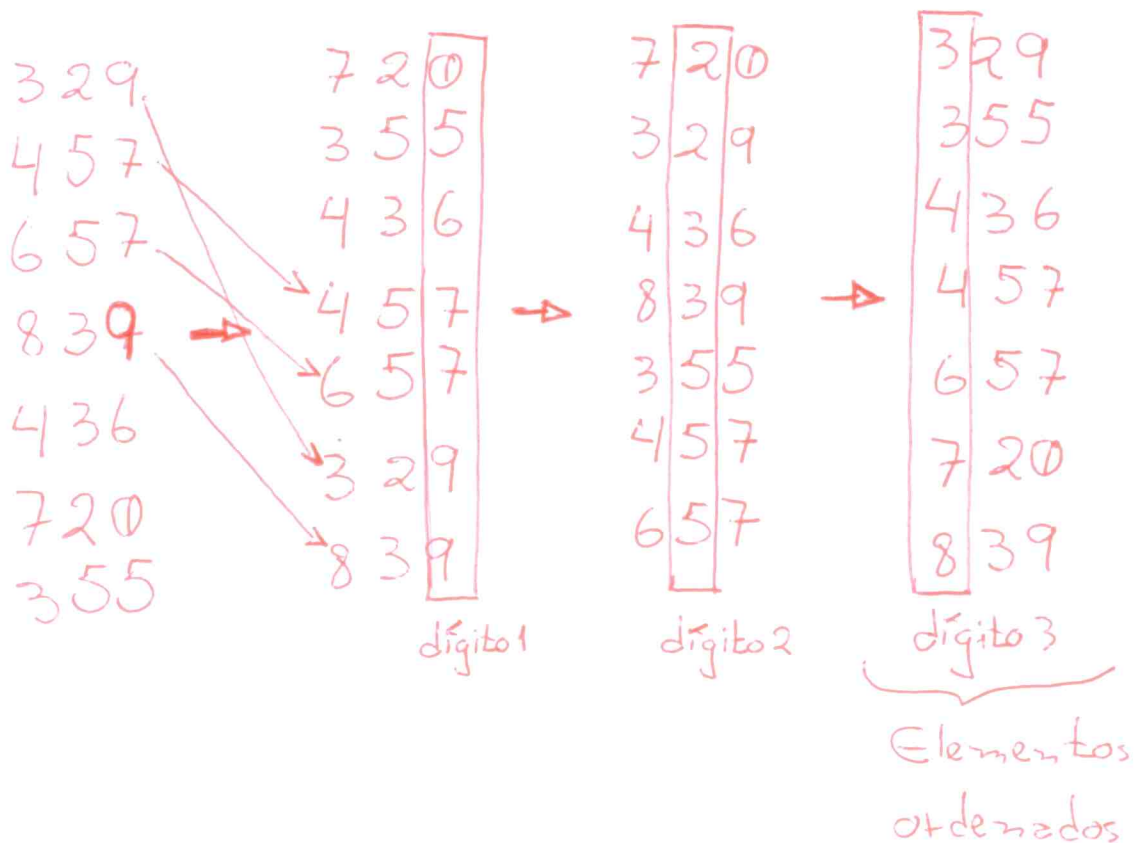 329
457
657
839
436
720
355
720
355
436
457
657
329
839
dígito1
720
329
436
839
355
457
657
dígito2
329
355
436
457
657
720
839
dígito3
Elementos
ordenados